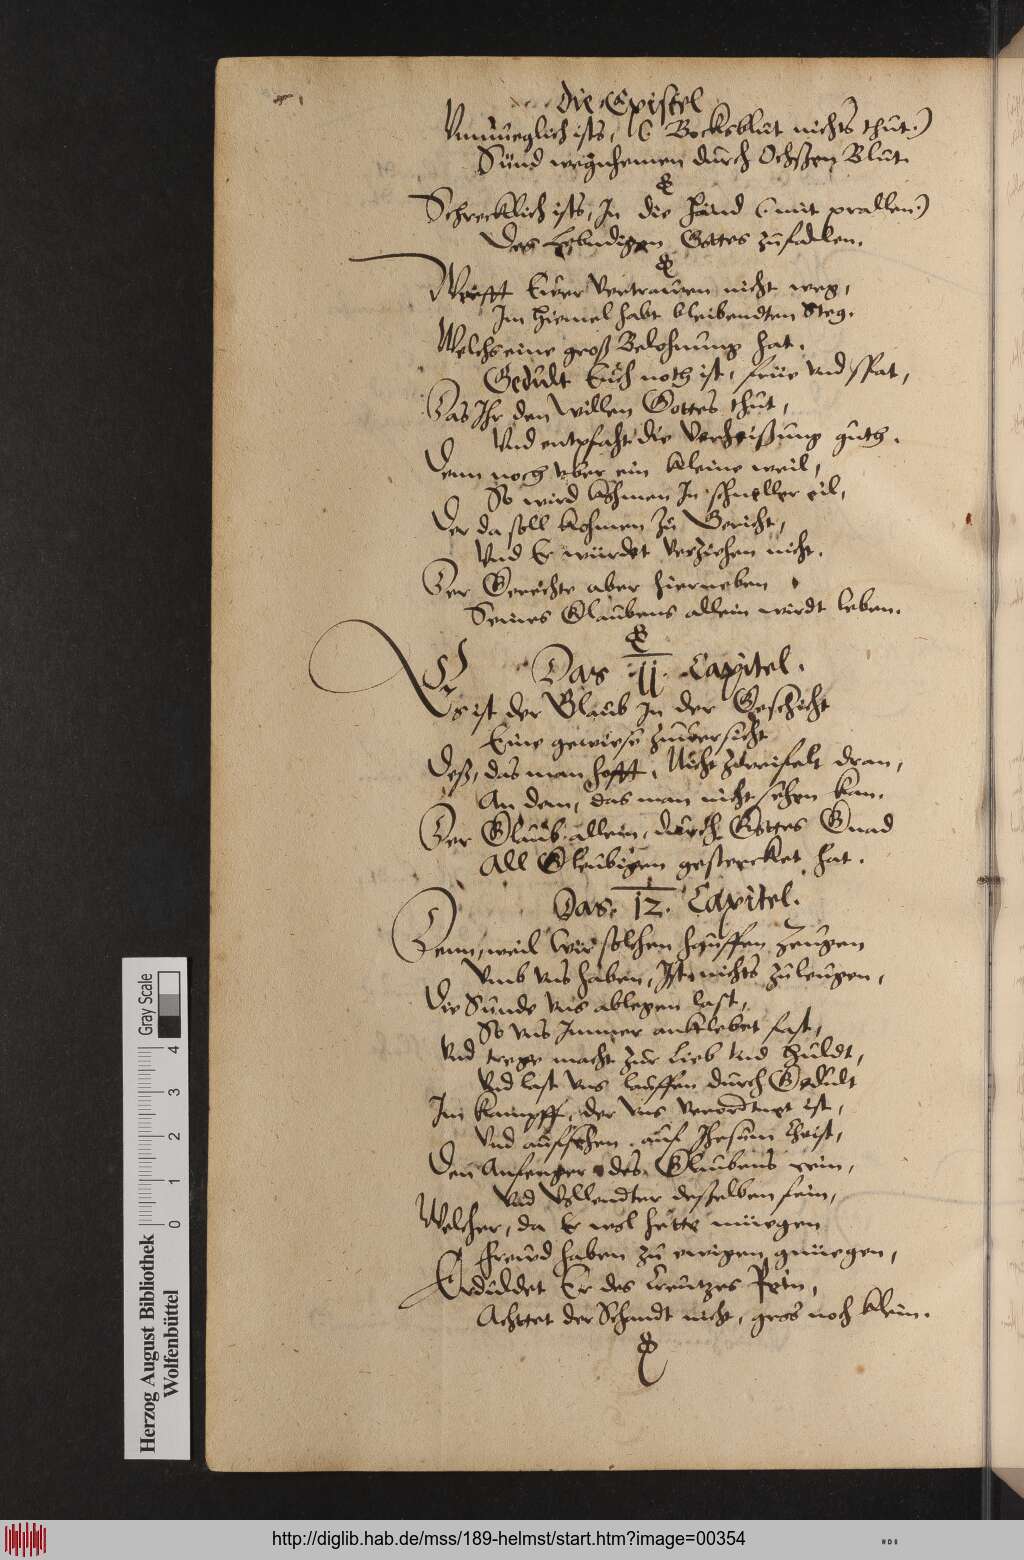 Die Epistel
Vnmüeglich ists, (: Bocksblut nichts thut:)
Sünd wegnehemen durch Ochsßen Blut.
Schrecklich ists, In die Händ (: mit prallen:)
Des Lebndigen Gottes zufallen.
Werfft Euer Vertrauen nicht weg,
Im Himel habt bleibendten Steg.
Welchs eine groß Belohnung hat.
Gedult Euch noth ist, früe vnd spat,
Das Ihr den Willen Gottes thut,
Vnd entpfaht die Verheißung guth.
Denn noch vber ein kleine weil,
So wird kohmen In schneller eil,
Der da soll kohmen zu Gericht,
Vnd Er würdet verziehen nicht.
Der Gerechte aber hierneben
Seines Glaubens allein wirdt leben.
Das 11. Capitel.
Es ist der Glaub In der Geschicht
Eine gewiese zuuersicht
Deß, das man hofft, Nicht zweifelt dran,
An dem, das man nicht sehen kan.
Der Glaub allein, durch Gottes Gnad
All Gleubigen gestercket hat.
Das 12. Capitel.
Denn, weil Wir solchen hauffen Zeugen
Vmb vns haben, Ist nichts zuleugen,
Die Sünde vns ablegen last,
So vns Immer anklebet fast,
Vnd trege macht zur Lieb vnd Huldt,
Vnd last vns lauffen durch Gedult
Im Kampff, der vns verordtnet ist,
Vnd aufsehen auf Jhesum Christ,
Den Anfenger des Glaubens rein,
Vnd Vollendter desselben fein,
Welcher, da Er wol hette mügen
Freud haben zu ewigen gnüegen,
Erduldet Er des Creutzes Pein,
Achtet der Schandt nicht, gros noch klein.
Gray Scale
0 1 2 3 4
Herzog August Bibliothek
Wolfenbüttel
http://diglib.hab.de/mss/189-helmst/start.htm?image=00354